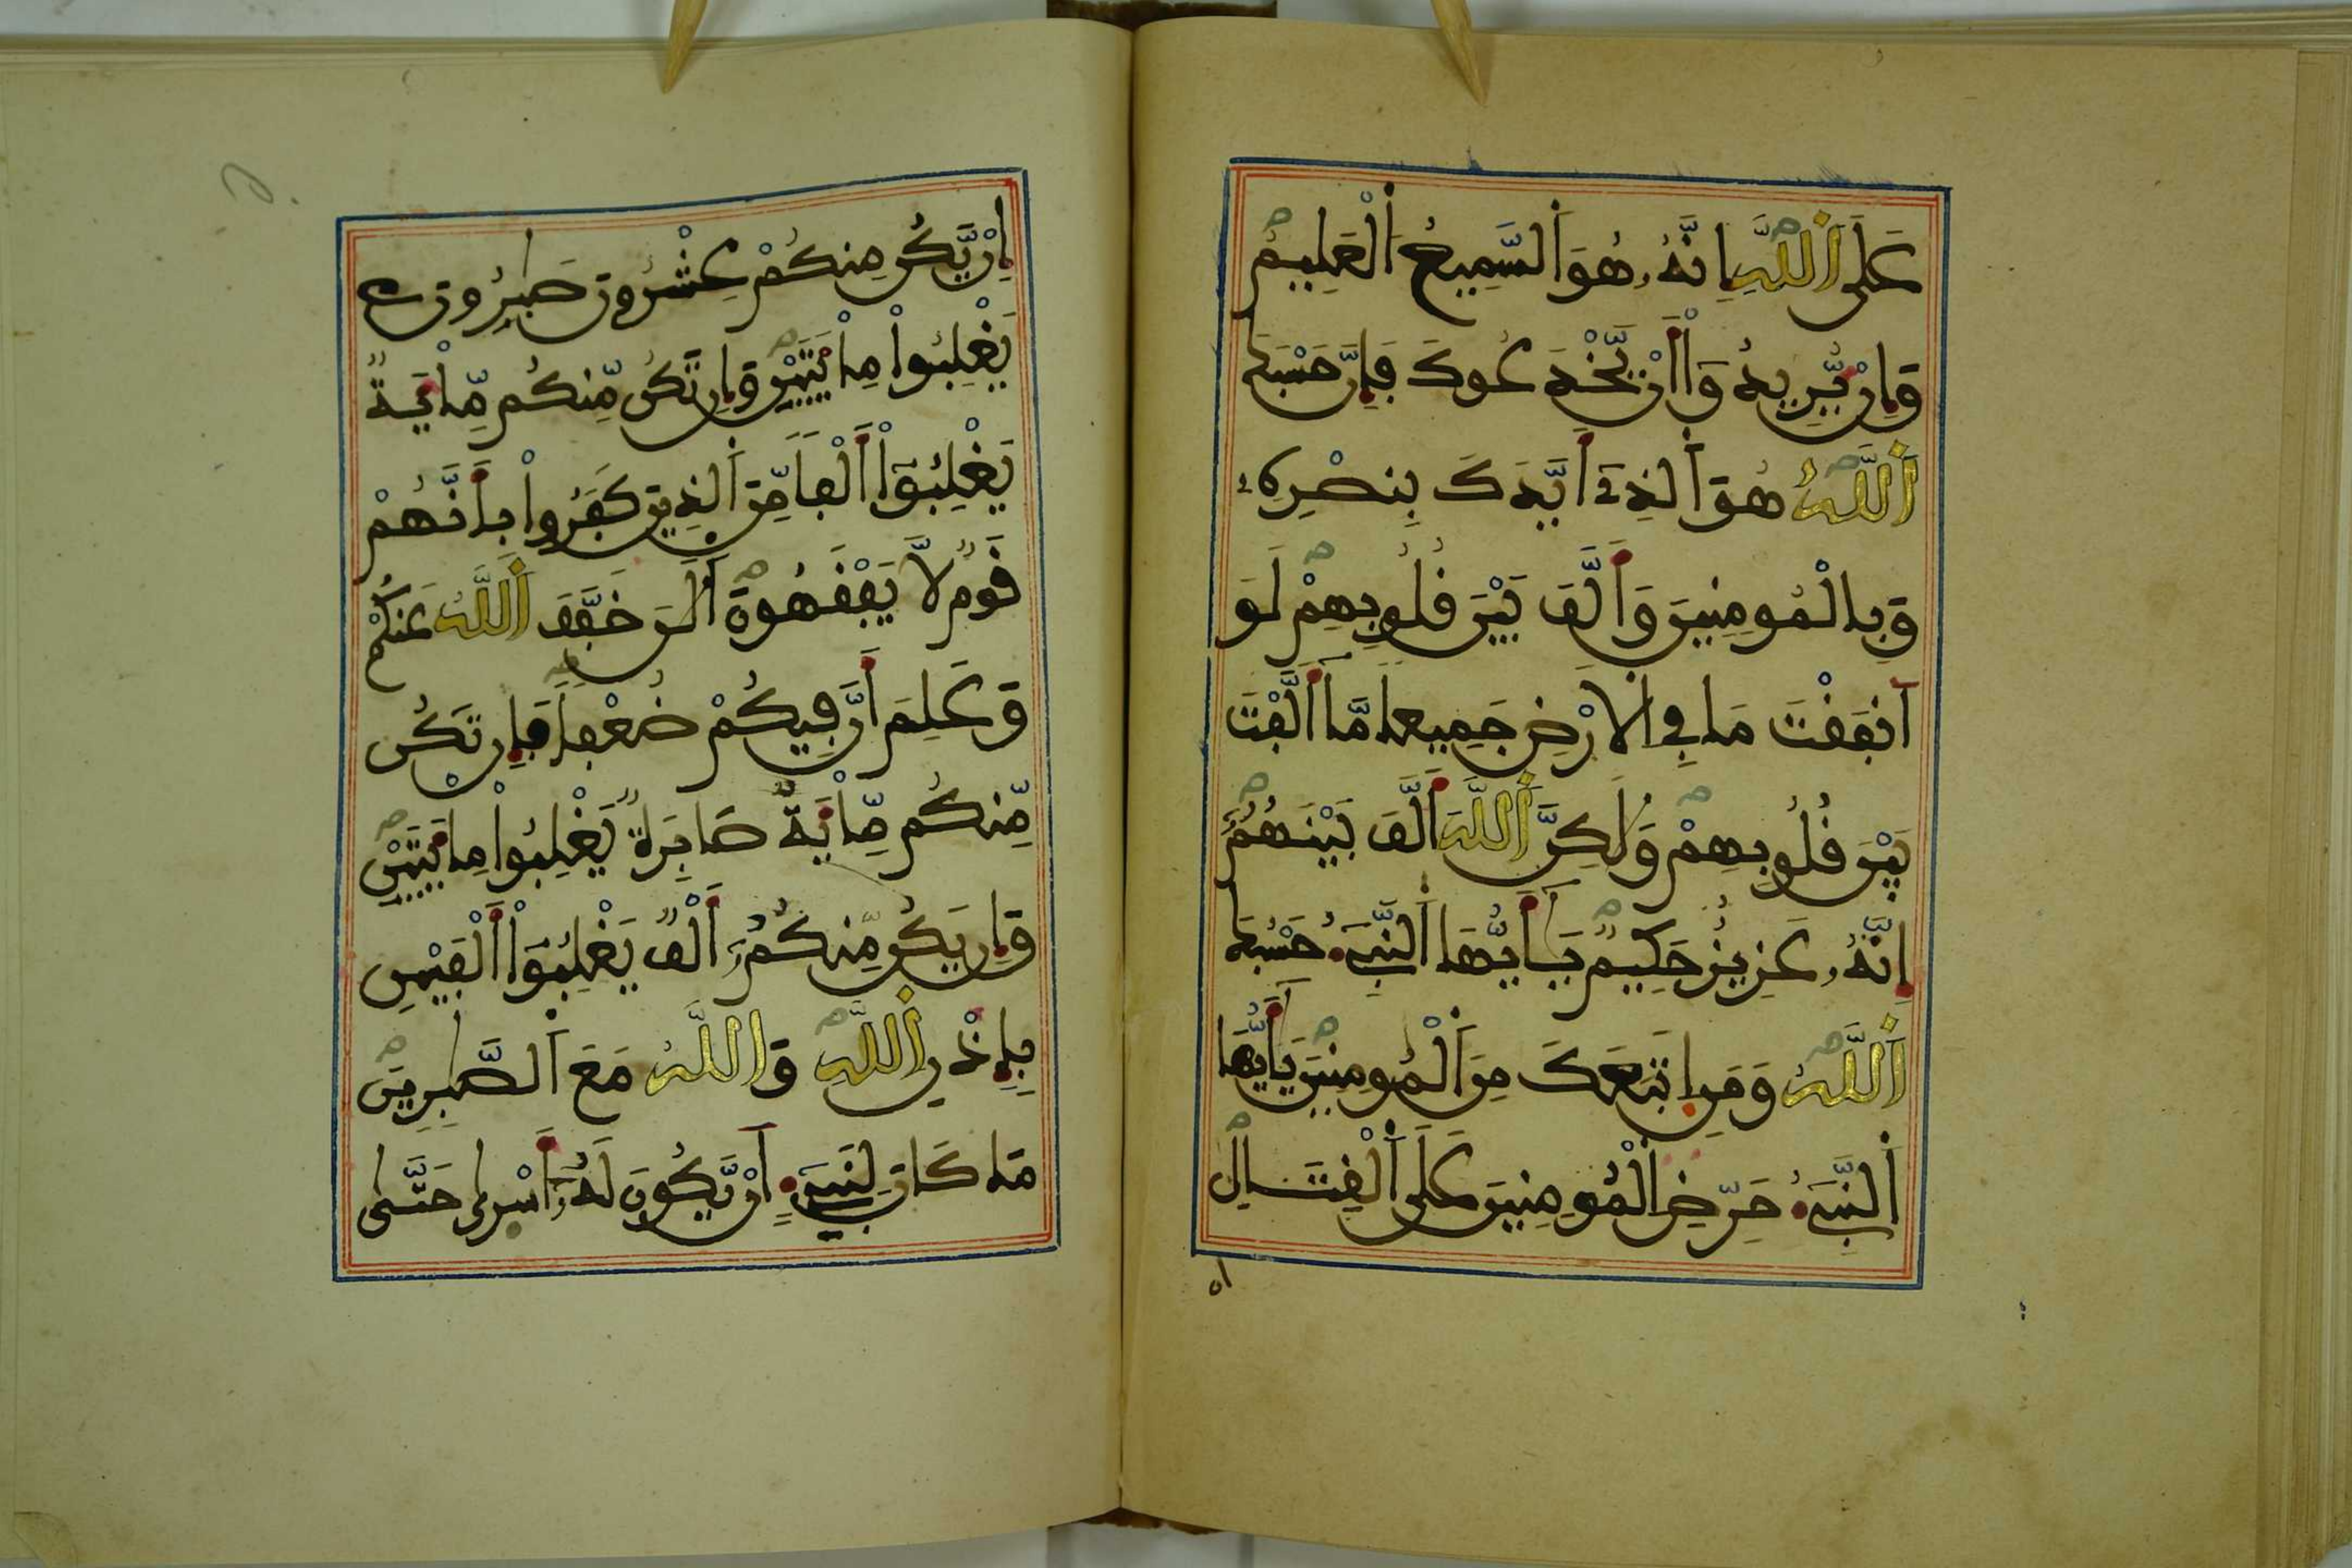 عَلَى اَللَّهِ إِنَّهُۥ هُوَ اَلسَّمِيعُ اَلْعَلِيمُ
وَإِنْ يُّرِيدُوٓاْ أَنْ يَّخْدَعُوكَ فَإِنَّ حَسْبَكَ
اَللَّهُ هُوَ اَلذِےٓ أَيَّدَكَ بِنَصْرِهِۦ
وَبِالْمُومِنِينَ وَأَلَّفَ بَيْنَ قُلُوبِهِمْ لَوَ
اَنفَقْتَ مَا فِي اِلَارْضِ جَمِيعاً مَّآ أَلَّفْتَ
بَيْنَ قُلُوبِهِمْ وَلَٰكِنَّ اَللَّهَ أَلَّفَ بَيْنَهُمُۥٓ
إِنَّهُۥ عَزِيزٌ حَكِيمٌ يَٰٓأَيُّهَا اَلنَّبِےٓءُ حَسْبُكَ
اَللَّهُ وَمَنِ اِتَّبَعَكَ مِنَ اَلْمُومِنِينَ يَٰٓأَيُّهَا
اَلنَّبِےٓءُ حَرِّضِ اِلْمُومِنِينَ عَلَى اَلْقِتَالِ
إِنْ يَّكُن مِّنكُمْ عِشْرُونَ صَٰبِرُونَ
يَغْلِبُواْ مِاْئَتَيْنِ وَإِن تَكُن مِّنكُم مِّاْئَةٌ
يَغْلِبُوٓاْ أَلْفاً مِّنَ اَلذِينَ كَفَرُواْ بِأَنَّهُمْ
قَوْمٌ لَّا يَفْقَهُونَ اَلَٰنَ خَفَّفَ اَللَّهُ عَنكُمْ
وَعَلِمَ أَنَّ فِيكُمْ ضُعْفاً فَإِن تَكُن
مِّنكُم مِّاْئَةٌ صَابِرَةٌ يَغْلِبُواْ مِاْئَتَيْنِ
وَإِن يَكُن مِّنكُمُۥٓ أَلْفٌ يَغْلِبُوٓاْ أَلْفَيْنِ
بِإِذْنِ اِللَّهِ وَاللَّهُ مَعَ اَلصَّٰبِرِينَ
مَا كَانَ لِنَبِےٓءٍ اَنْ يَّكُونَ لَهُۥٓ أَسْرَىٰ حَتَّىٰ